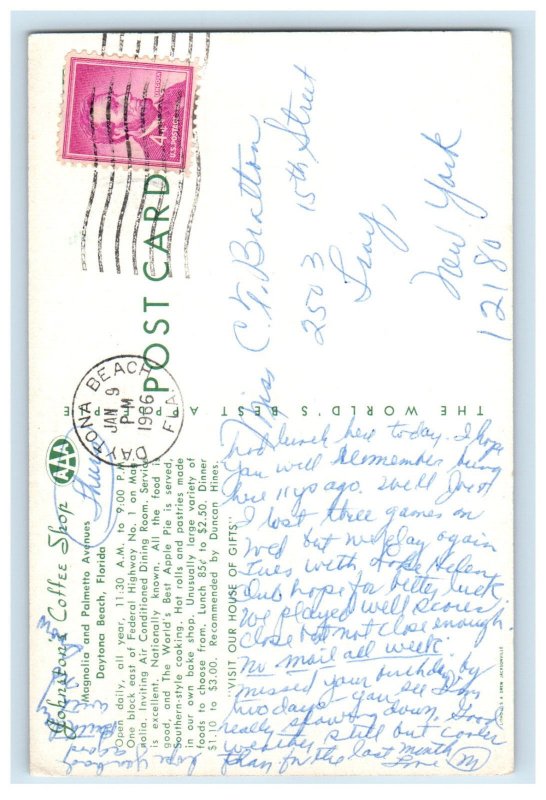 Johnston's Coffee Shop
AAA
Magnolia and Palmetto Avenues
Daytona Beach, Florida
Open daily, all year, 11:30 A.M. to 9:00 P.M.
One block east of Federal Highway No. 1 on Mag-
nolia. Inviting Air Conditioned Dining Room. Service
is excellent. Nationally known. All the food is
good, and The World's Best Apple Pie is served.
Southern-style cooking. Hot rolls and pastries made
in our own bake shop. Unusually large variety of
foods to choose from. Lunch 85¢ to $2.50. Dinner
$1.10 to $3.00. Recommended by Duncan Hines.
"VISIT OUR HOUSE OF GIFTS"
THE WORLD'S BEST APPLE PIE
POST CARD
DAYTONA BEACH
JAN 9
PM
1966
FLA.
4¢
U.S. POSTAGE
LINCOLN
Miss C. F. Bratton
2503 15th Street
Troy,
New York
12180
Thurs
Had lunch here today. I hope
you will remember being
here 11 yrs ago. Well Joe &
I lost three games on
Wed but we play again
Tues with Helen
Club hope for better luck
We played well scores
close but not close enough.
No mail all week.
missed your birthday by
two days you see I'm
really slowing down. Good
weather still but cooler
than for the last month
Love M